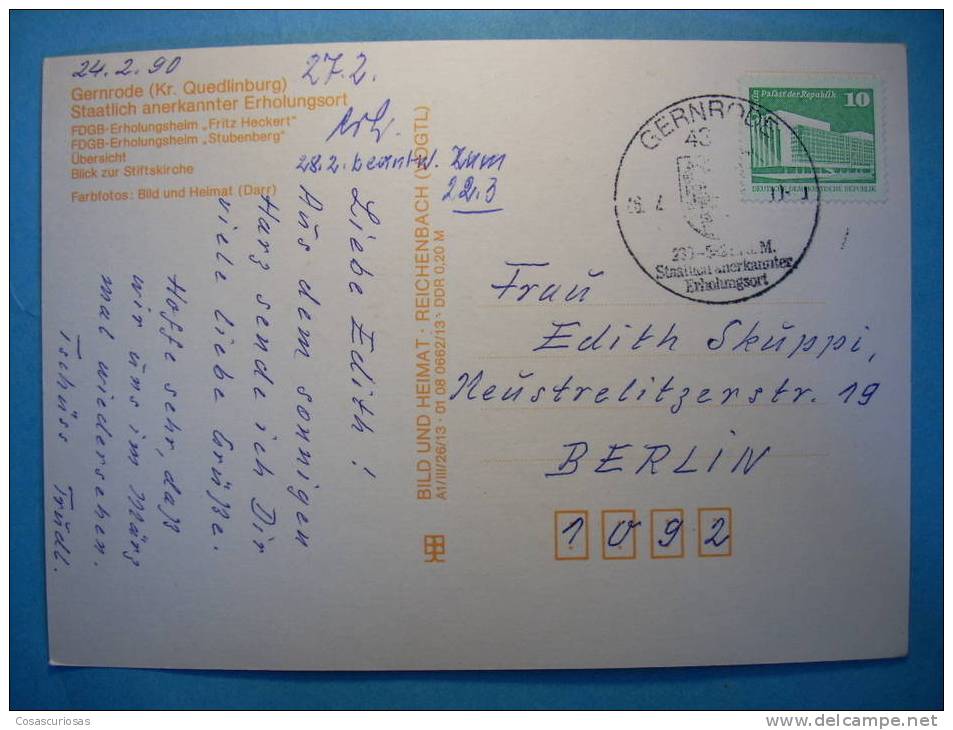 24.2.90
Gernrode (Kr. Quedlinburg)
Staatlich anerkannter Erholungsort
FDGB-Erholungsheim „Fritz Heckert"
FDGB-Erholungsheim „Stubenberg"
Übersicht
Blick zur Stiftskirche
Farbfotos: Bild und Heimat (Darr)
27.2.
28.2. beantw. zum
22.3
Liebe Edith!
Aus dem sonnigen
Harz sende ich Dir
viele liebe Grüße.
Hoffe sehr, daß
wir uns im März
mal wiedersehen.
Tschüss Trudl.
BILD UND HEIMAT · REICHENBACH (VOGTL)
A1/III/26/13 · 01 08 0662/13 · DDR 0,20 M
GERNRODE
43
Staatlich anerkannter
Erholungsort
Palast der Republik 10
DEUTSCHE DEMOKRATISCHE REPUBLIK
Frau
Edith Skuppi,
Neustrelitzerstr. 19
BERLIN
1092
Cosascuriosas
www.delcampe.net